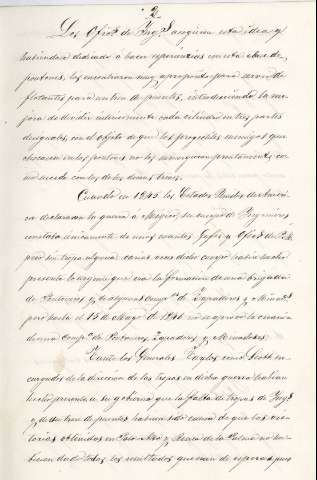 2
Los Ofics de Ings acogieron esta idea y
habiéndose dedicado á hacer esperiencias con esta clase de
pontones, los encontraron muy apropósito para servir de
flotantes para un tren de puentes, introduciendo la me-
jora de dividir interiormente cada cilindro en tres partes
desiguales, con el objeto de que los proyectiles enemigos que
chocaran en los pontones no los sumergieran prontamente co-
mo sucede con los de las demas clases.
Cuando en 1845 los Estados Unidos de Améri-
ca declararon la guerra á Mégico, su cuerpo de Ingenieros
constaba únicamente de unos cuantos Jefes y Ofics de
pero sin tropa alguna; varias veces dicho cuerpo habia hecho
presente lo urgente que era la formacion de una brigada
de Pontoneros y de algunas Comps de Zapadores y Minads
pero hasta el 15 de Mayo de 1846 no se aprobó la creacion
de una Compa de Pontoneros Zapadores y Minadores.
Tanto los Generales Taylor como Scott en-
cargados de la direccion de las tropas en dicha guerra habian
hecho presente á su gobierno que la falta de tropas de Ings
y de un tren de puentes habian sido causa de que las vic-
torias obtenidas en Palo-Alto y Resaca de la Palma no hu-
biesen dado todos los resultados que eran de esperar, pues